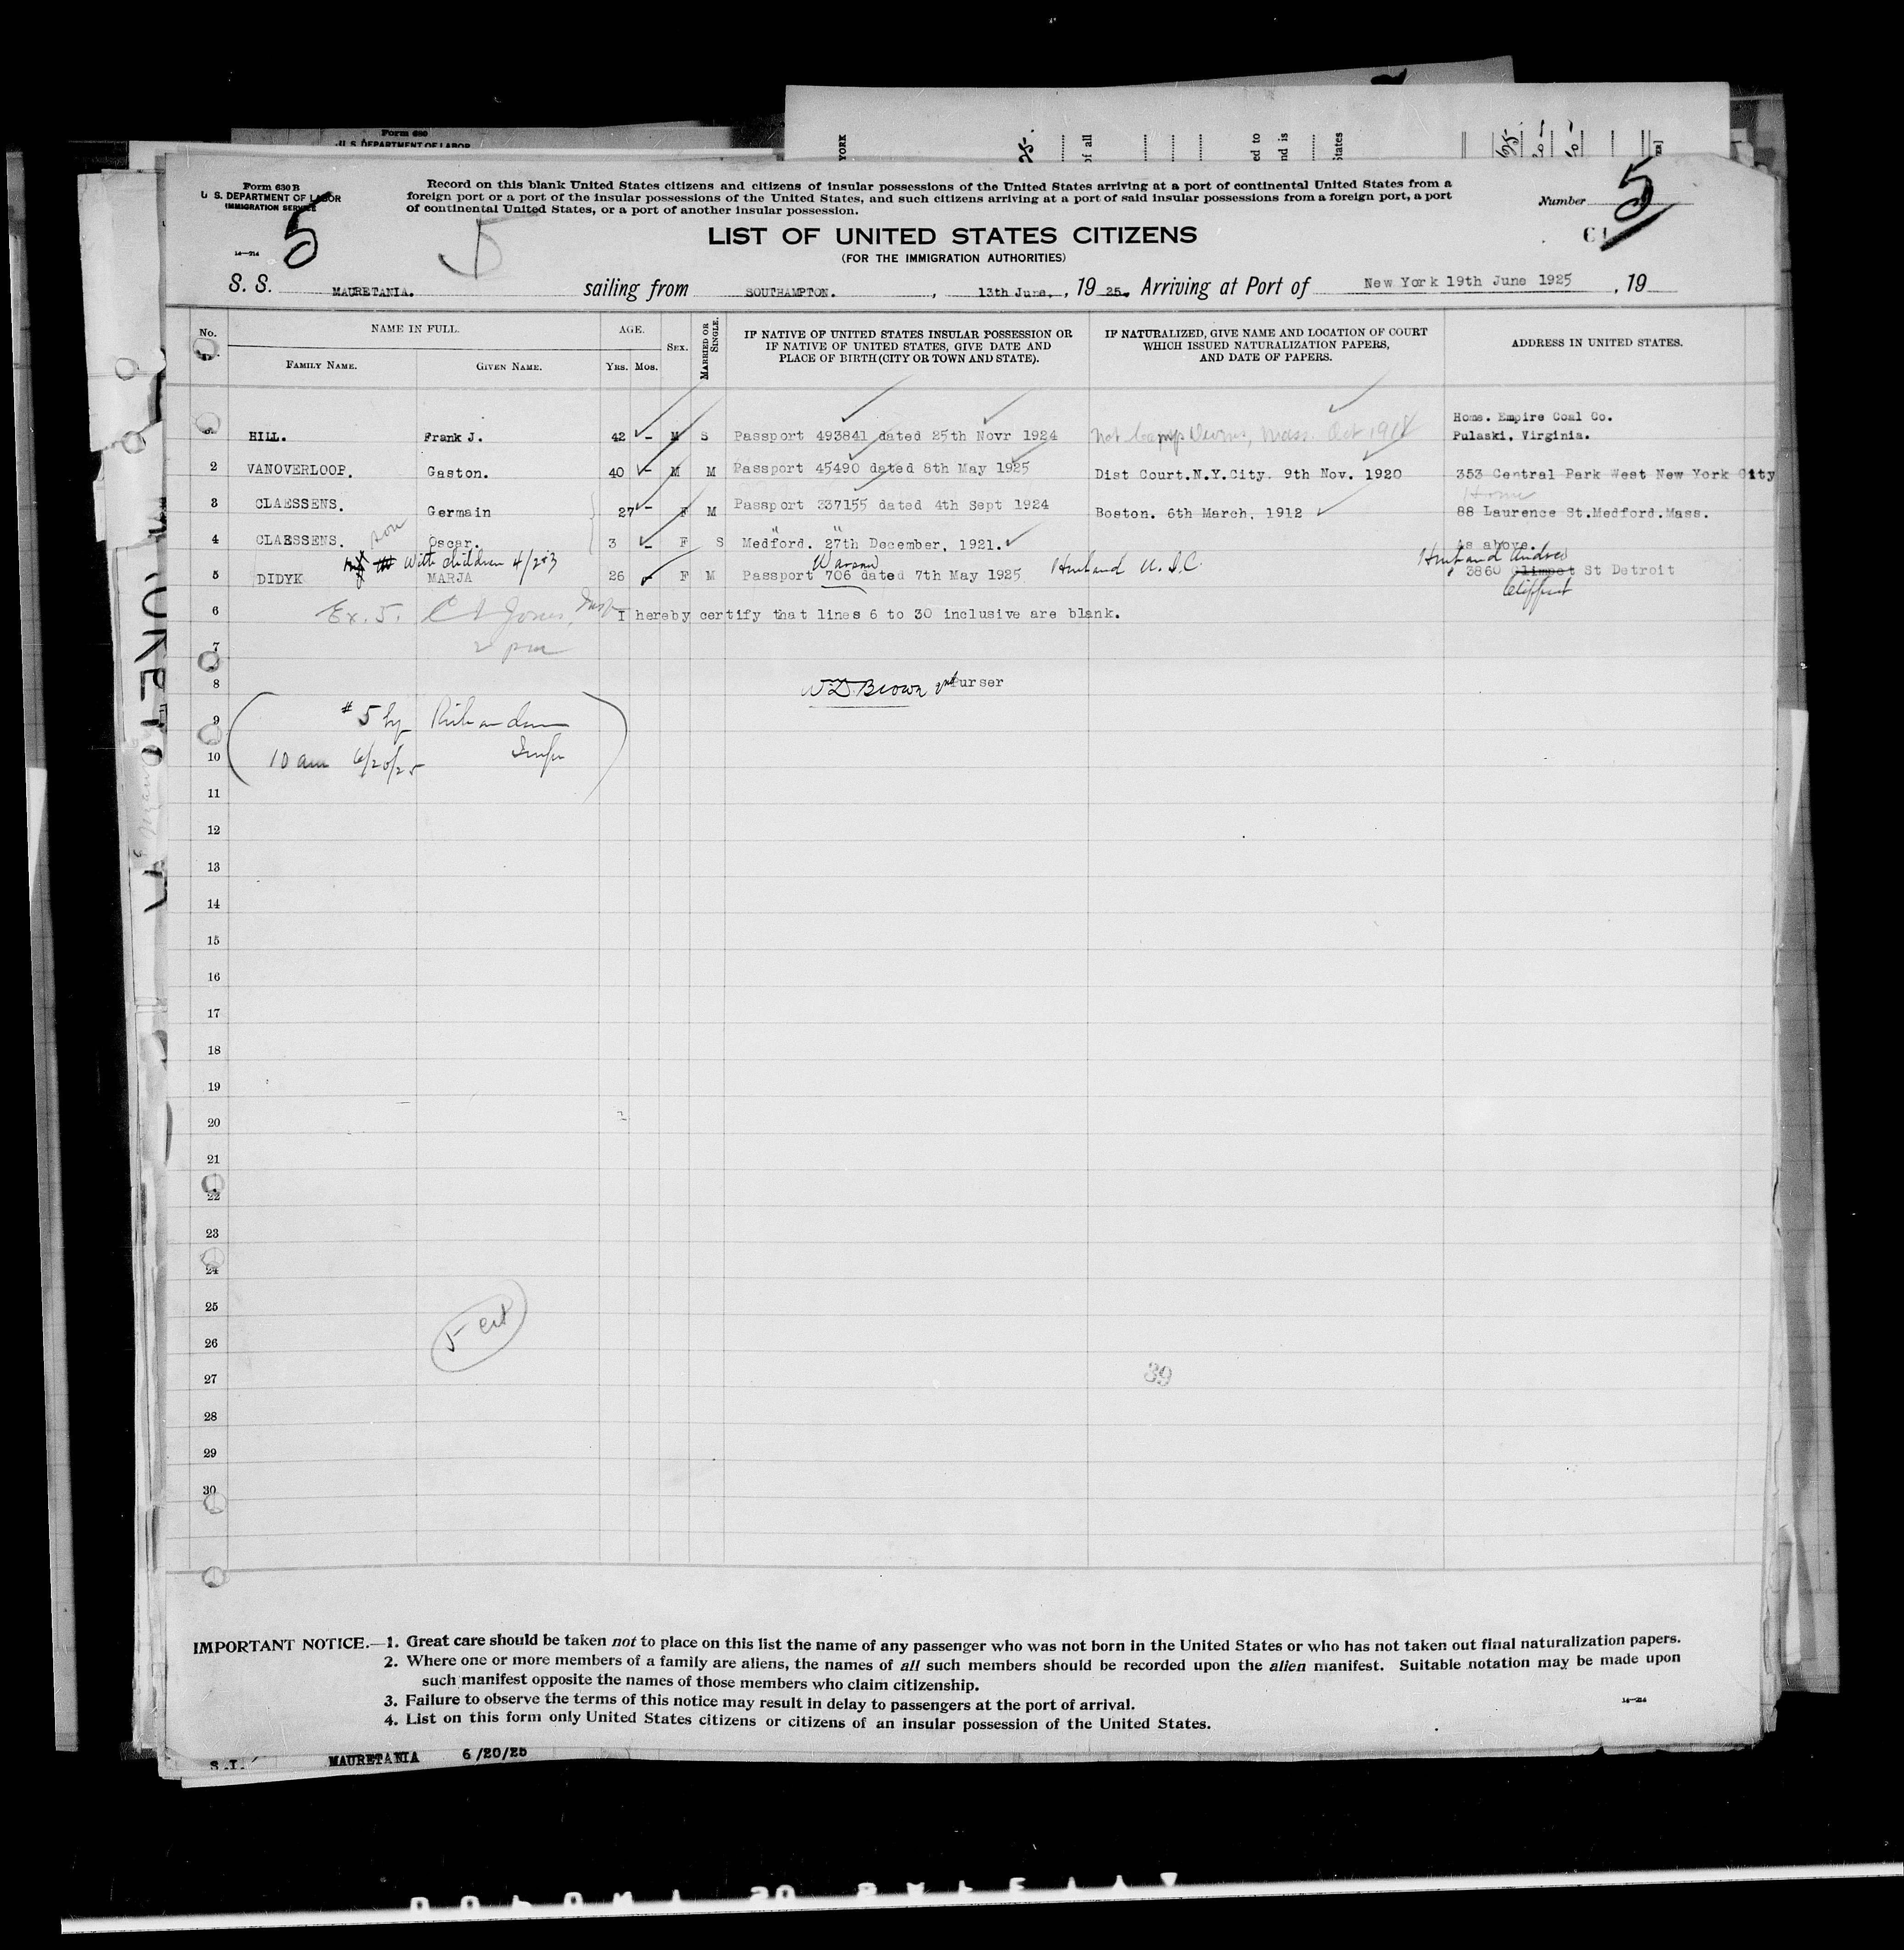 Form 630
U. S. DEPARTMENT OF LABOR
YORK
25.
of all
ed to
nd is
States
Form 630 B
U. S. DEPARTMENT OF LABOR
IMMIGRATION SERVICE
14—214
5
5
Record on this blank United States citizens and citizens of insular possessions of the United States arriving at a port of continental United States from a
foreign port or a port of the insular possessions of the United States, and such citizens arriving at a port of said insular possessions from a foreign port, a port
of continental United States, or a port of another insular possession.
Number 5
LIST OF UNITED STATES CITIZENS
(FOR THE IMMIGRATION AUTHORITIES)
S. S. MAURETANIA. sailing from SOUTHAMPTON. , 13th June. , 19 25. Arriving at Port of New York 19th June 1925 , 19
No. NAME IN FULL. AGE. SEX. MARRIED OR SINGLE. IF NATIVE OF UNITED STATES INSULAR POSSESSION OR IF NATIVE OF UNITED STATES, GIVE DATE AND PLACE OF BIRTH (CITY OR TOWN AND STATE). IF NATURALIZED, GIVE NAME AND LOCATION OF COURT WHICH ISSUED NATURALIZATION PAPERS, AND DATE OF PAPERS. ADDRESS IN UNITED STATES.
FAMILY NAME. GIVEN NAME. YRS. MOS.
Home. Empire Coal Co.
HILL. Frank J. 42 - M S Passport 493841 dated 25th Novr 1924 Nat Camp Devens, Mass. Oct 1918 Pulaski, Virginia.
2 VANOVERLOOP. Gaston. 40 - M M Passport 45490 dated 8th May 1925 Dist Court.N.Y.City. 9th Nov. 1920 353 Central Park West New York City
Home
3 CLAESSENS. Germain 27 - F M Passport 337155 dated 4th Sept 1924 Boston. 6th March, 1912 88 Laurence St.Medford.Mass.
son
4 CLAESSENS. Oscar. 3 - F S Medford. 27th December, 1921. As above.
With children 4/2&3 Warsaw Husband U.S.C. Husband Andrew
5 DIDYK MARJA 26 - F M Passport 706 dated 7th May 1925 3860 Climpet St Detroit
Clippert
6 Ex. 5. Insp I hereby certify that lines 6 to 30 inclusive are blank.
7 2 pm
8 W D Brown 2nd Purser
9 # 5 by Richardson
10 10 am 6/20/25 Insp
11
12
13
14
15
16
17
18
19
20
21
22
23
24
25
26 5 cit
27 39
28
29
30
IMPORTANT NOTICE.—1. Great care should be taken not to place on this list the name of any passenger who was not born in the United States or who has not taken out final naturalization papers.
2. Where one or more members of a family are aliens, the names of all such members should be recorded upon the alien manifest. Suitable notation may be made upon
such manifest opposite the names of those members who claim citizenship.
3. Failure to observe the terms of this notice may result in delay to passengers at the port of arrival.
4. List on this form only United States citizens or citizens of an insular possession of the United States.
14—214
S.I. MAURETANIA 6/20/25